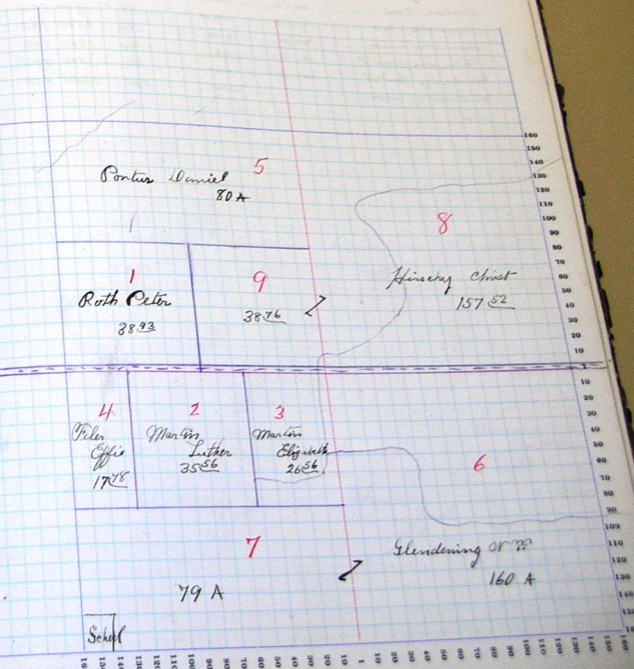 5
Pontius Daniel
80 A
8
Hirschy Christ
157 52
1
Roth Peter
38 93
9
38 76
4
Effie
17 78
2
Martin
Luther
35 56
3
Martin
Elizabeth
26 56
6
7
79 A
Glendening or
160 A
School
160
150
140
130
120
110
100
90
80
70
60
50
40
30
20
10
1
10
20
30
40
50
60
70
80
90
100
110
120
130
140
150